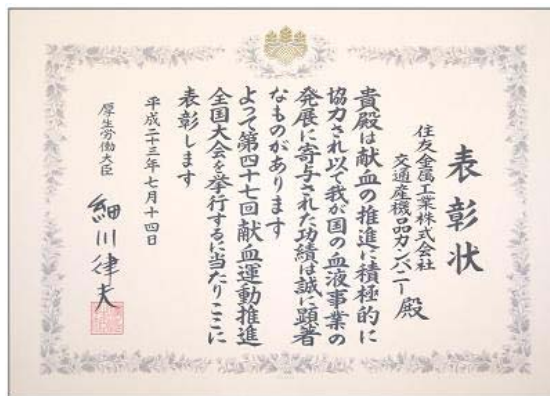 表彰状
住友金属工業株式会社
交通産機品カンパニー殿
貴殿は献血の推進に積極的に
協力され以て我が国の血液事業の
発展に寄与された功績は誠に顕著
なものがあります
よって第四十七回献血運動推進
全国大会を挙行するに当たりここに
表彰します
平成二十三年七月十四日
厚生労働大臣
細川律夫